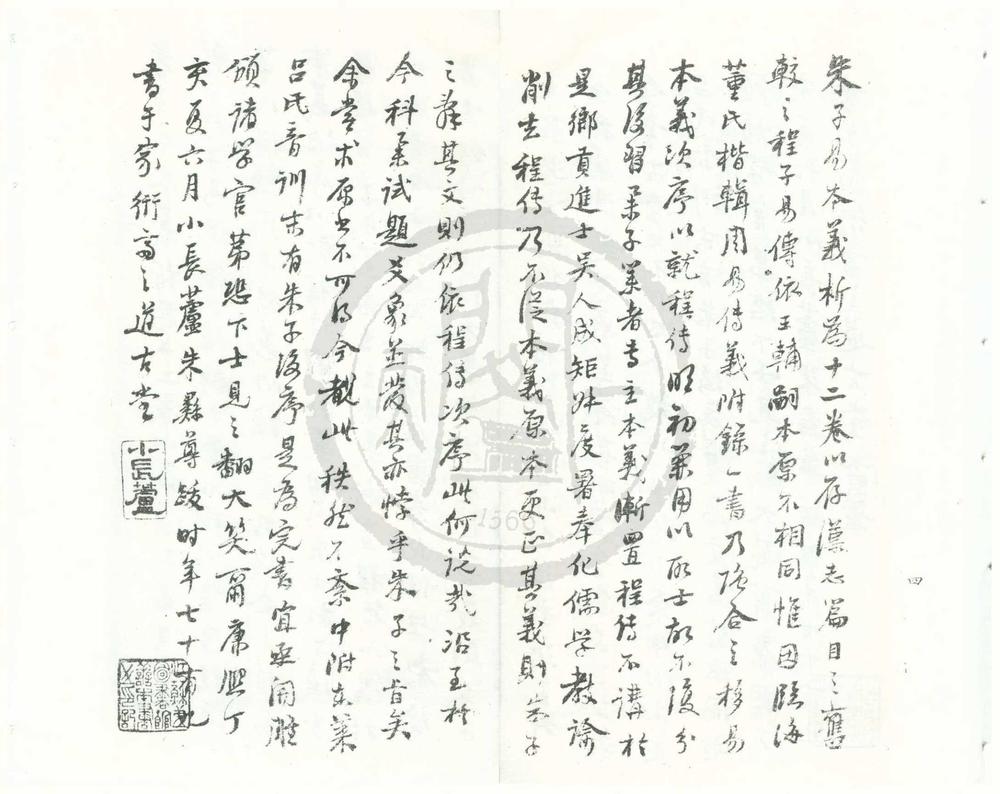 朱子易本義析為十二卷以存漢志篇目之舊
較之程子易傳依王輔嗣本原不相同惟因臨海
董氏楷輯周易傳義附錄一書乃強合之移易
本義次序以就程傳明初兼用以取士故不復分
其後習舉子業者專主本義漸置程傳不講於
是鄉貢進士吳人成矩叔度署奉化儒學教諭
削去程傳乃不從本義原本更正其義則朱子
之辭其文則仍依程傳次序此何說哉沿至於
今科舉試題爻象並發其亦悖乎朱子之旨矣
余嘗求原書不可得今覩此秩然不紊中附東萊
呂氏音訓末有朱子後序是為完書宜亟開雕
頒諸學官第恐下士見之翻大笑爾康熙丁
亥夏六月小長蘆朱彝尊跋時年七十有九
書于家衖南之道古堂
小長蘆
四
1566